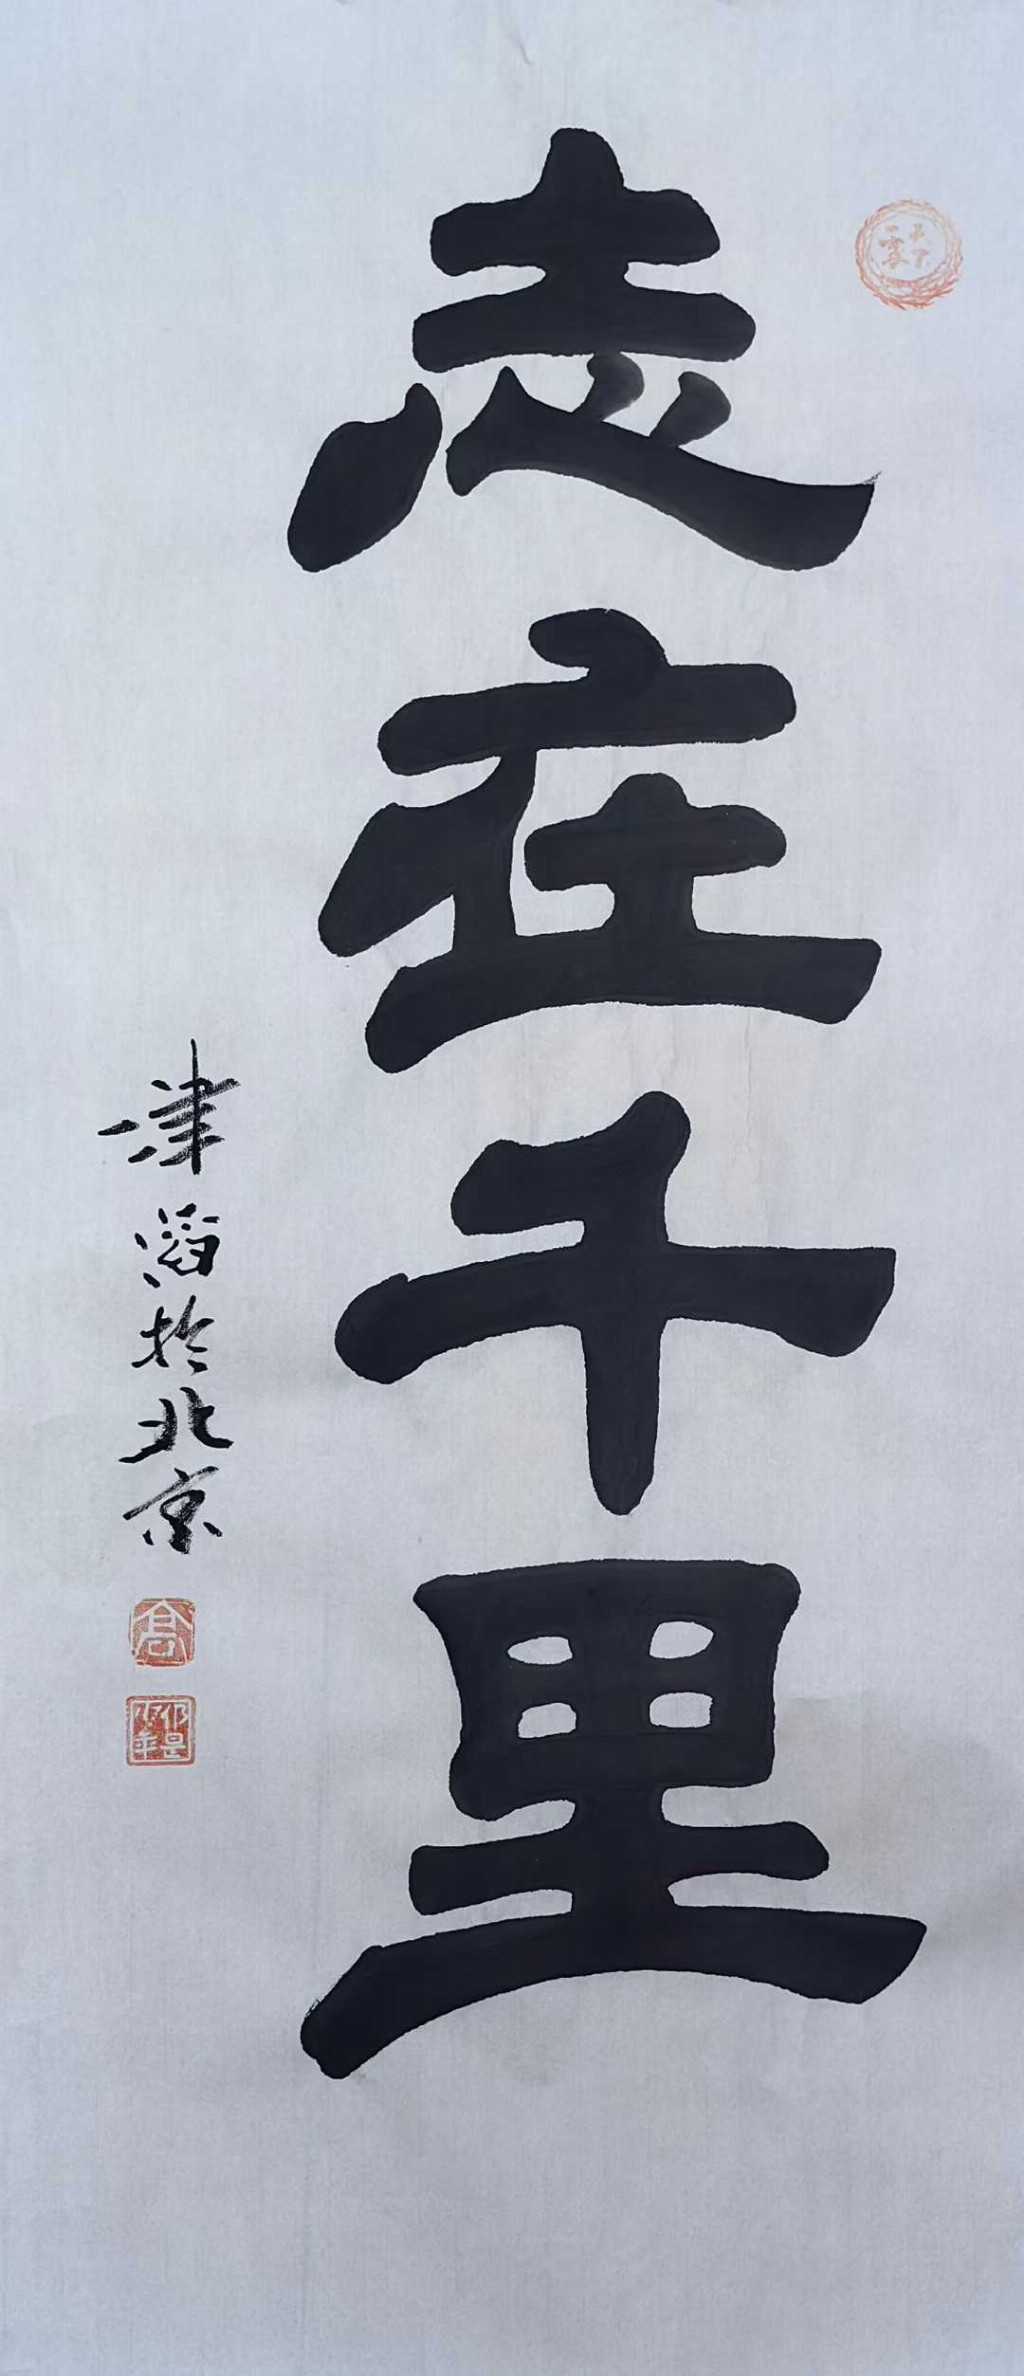 志在千里
津滔於北京
高